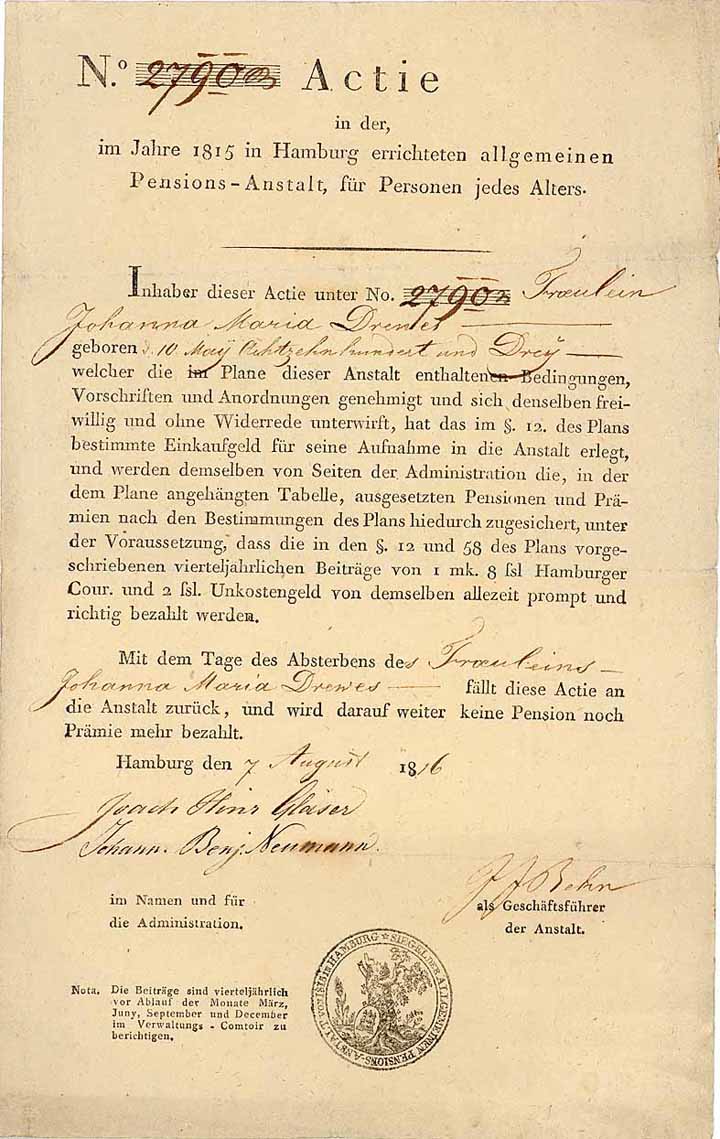 N.º 2790 Actie
in der,
im Jahre 1815 in Hamburg errichteten allgemeinen
Pensions-Anstalt, für Personen jedes Alters.
Inhaber dieser Actie unter No. 2790 Fræulein
Johanna Maria Drewes
geboren d. 10 Maÿ Achtzehnhundert und Dreÿ
welcher die im Plane dieser Anstalt enthaltenen Bedingungen,
Vorschriften und Anordnungen genehmigt und sich denselben frei-
willig und ohne Widerrede unterwirft, hat das im §. 12. des Plans
bestimmte Einkaufgeld für seine Aufnahme in die Anstalt erlegt,
und werden demselben von Seiten der Administration die, in der
dem Plane angehängten Tabelle, ausgesetzten Pensionen und Prä-
mien nach den Bestimmungen des Plans hiedurch zugesichert, unter
der Voraussetzung, dass die in den §. 12 und 58 des Plans vorge-
schriebenen vierteljährlichen Beiträge von 1 mk. 8 ſsl Hamburger
Cour. und 2 ſsl. Unkostengeld von demselben allezeit prompt und
richtig bezahlt werden.
Mit dem Tage des Absterbens des Fræuleins
Johanna Maria Drewes fällt diese Actie an
die Anstalt zurück, und wird darauf weiter keine Pension noch
Prämie mehr bezahlt.
Hamburg den 7 August 1816
Joach Hinr Gläser
Johann. Benj. Neumann.
im Namen und für
die Administration.
P J Behn
als Geschäftsführer
der Anstalt.
SIEGEL DER ALLGEMEINEN PENSIONS-ANSTALT VON 1815 IN HAMBURG
Nota. Die Beiträge sind vierteljährlich
vor Ablauf der Monate März,
Juny, September und December
im Verwaltungs-Comtoir zu
berichtigen.